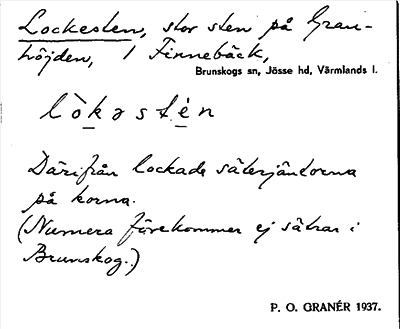 Lockesten, stor sten på Gran-
höjden, i Finnebäck,
Brunskogs sn, Jösse hd, Värmlands l.
lòkəstén
Därifrån lockade säterjäntorna
på korna.
(Numera förekommer ej sätrar i
Brunskog.)
P. O. GRANÉR 1937.